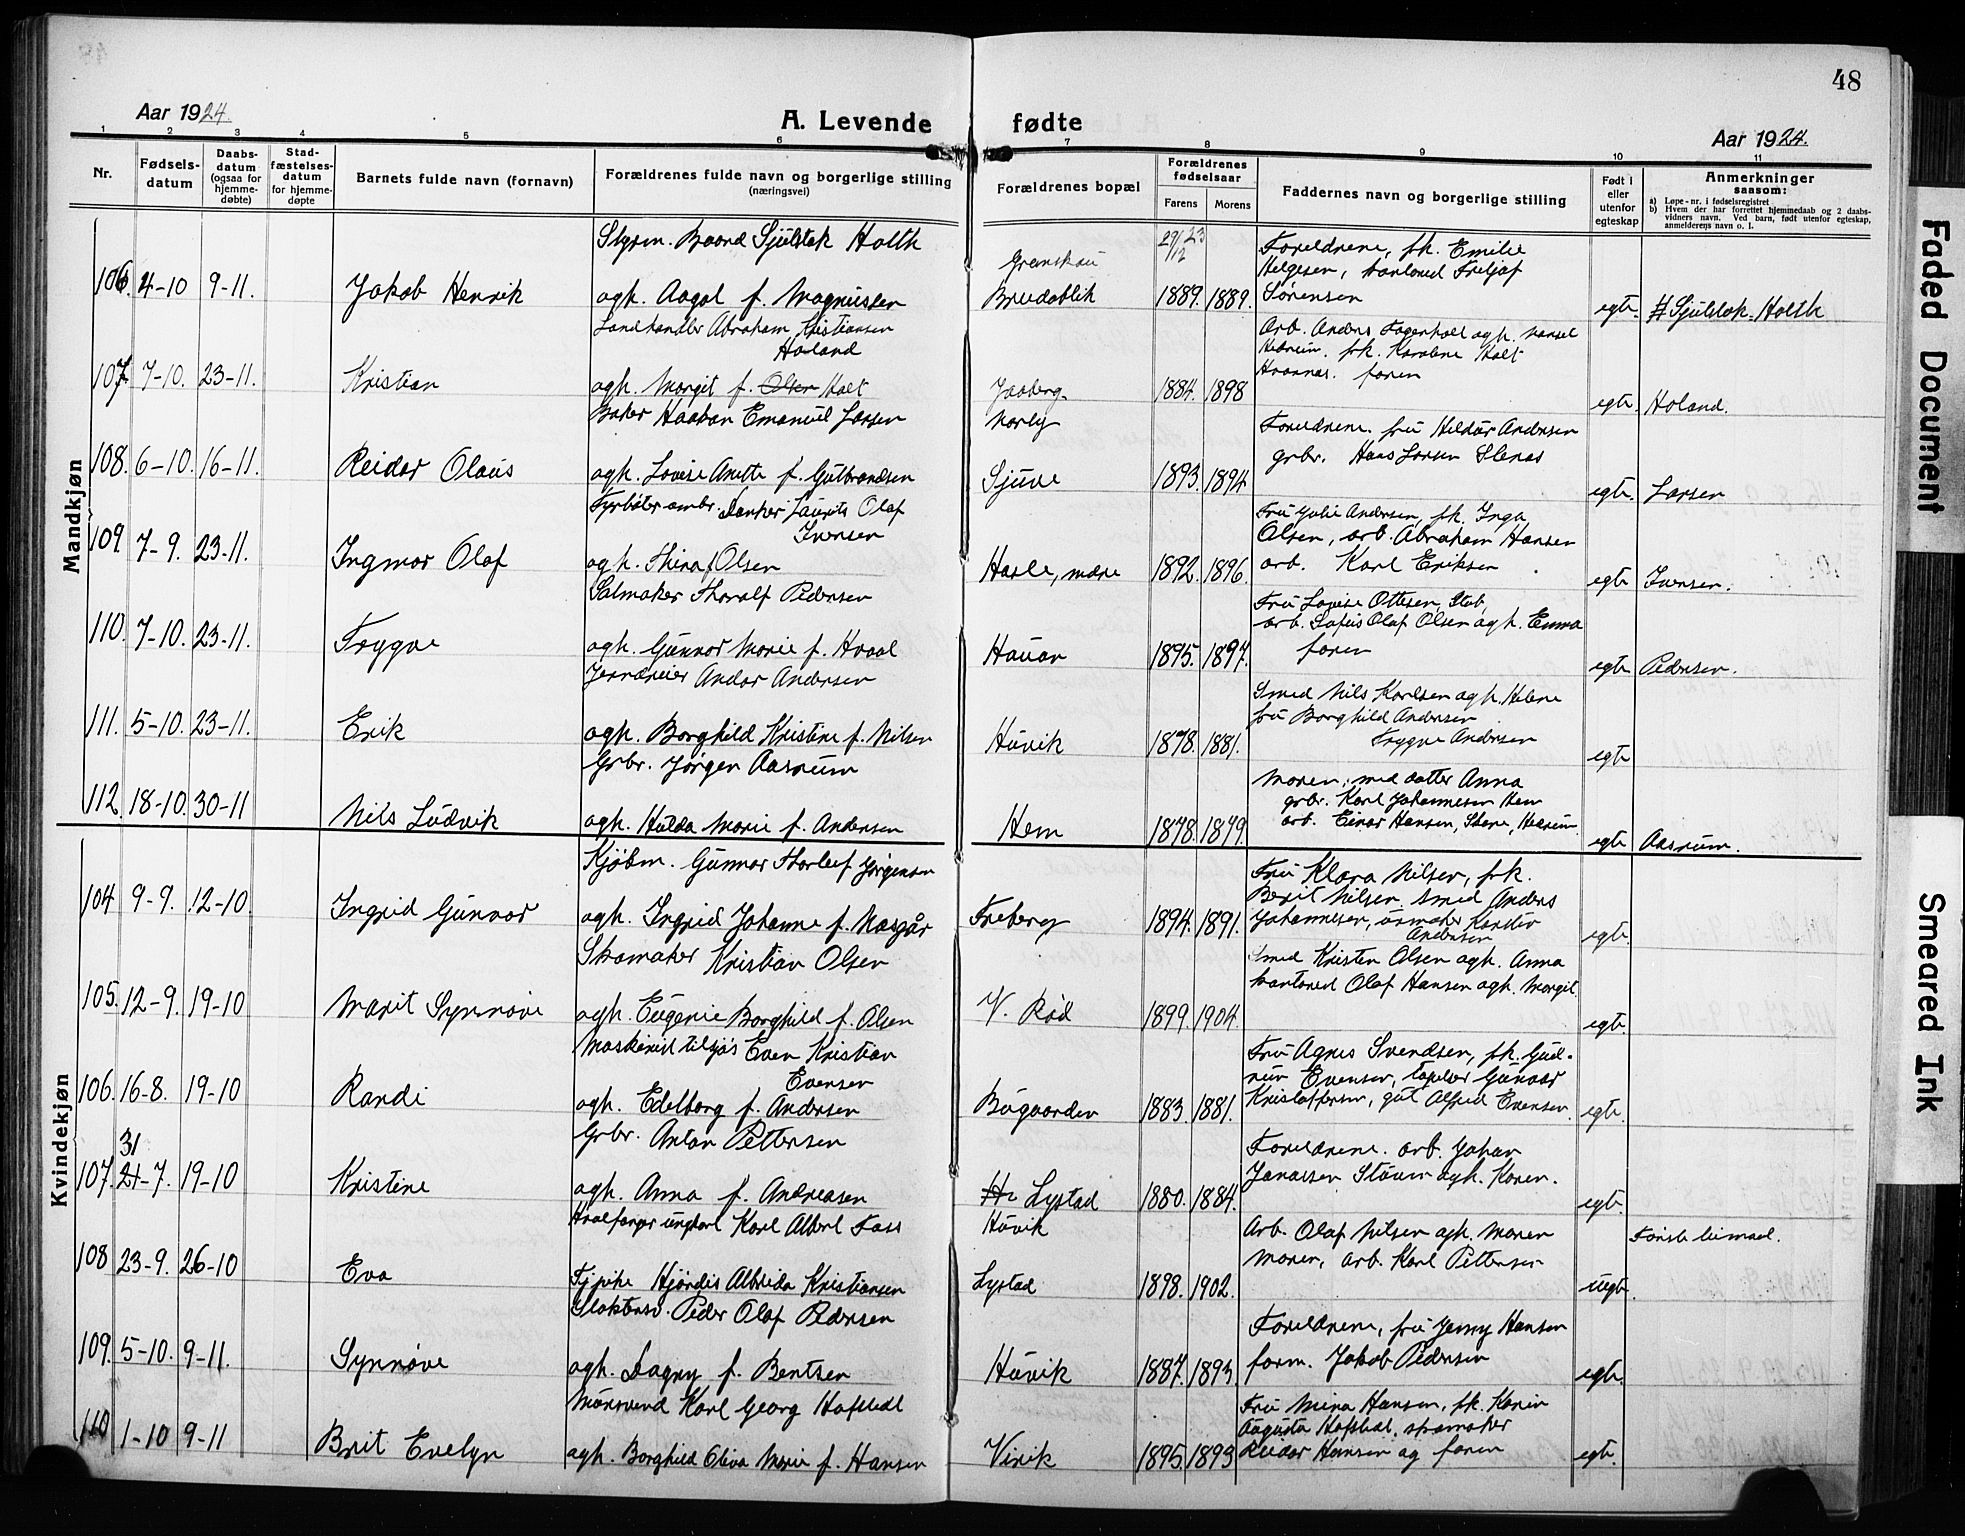 48
Aar 1924.
A. Levende fødte
Aar 1924.
1 2 3 4 5 6 7 8 9 10 11
Nr.
Fødsels-
datum
Daabs-
datum
(ogsaa for
hjemme-
døbte)
Stad-
fæstelses-
datum
for hjemme-
døpte
Barnets fulde navn (fornavn)
Forældrenes fulde navn og borgerlige stilling
(næringsvei)
Forældrenes bopæl
Forældrenes
fødselsaar
Farens Morens
Faddernes navn og borgerlige stilling
Født i
eller
utenfor
egteskap
Anmerkninger
saasom:
a) Løpe-nr. i fødselsregistret
b) Hvem der har forrettet hjemmedaab og 2 daabs-
vidners navn. Ved barn, født utenfor egteskap,
anmelderens navn o. l.
Mandkjøn
106. 4-10 9-11. Jakob Henrik
Styrm. Baard Sjulstok Holth
ogh. Aagot f. Magnussen
Breidablik
29/12 23
1889. 1889.
Foreldrene, frk. Emilie
Helgesen, Fritjof
Sørensen
egte. # Sjulstok-Holth
107. 7-10. 23-11. Kristian
Landhandler Abraham Kristiansen
Holand
ogh. Margit f. Olsen Holt
Jaaberg.
1884. 1898
Arb. Anders Fagerholt ogh.
Hedrum. frk. Karoline Holt
faren
egte. Holand.
108. 6-10. 16-11. Reidar Olaus
Baker Haakon Emanuel Larsen
ogh. Lovise Anette f. Gulbrandsen
Sjuve
1893. 1894
Foreldrene. fru Hildur Andersen
grbr. Hans Larsen
egte. Larsen
109. 7-9. 23-11. Ingmar Olaf
Fyrbøter ombr. Laurits Olaf
Iversen
ogh. Thina Olsen
Hasle, møre
1892. 1896.
Fru Julie Andersen, frk. Inga
Olsen, arb. Abraham Hansen
arb. Karl Eriksen
egte Iversen.
110. 7-10. 23-11. Trygve
Salmaker Thoralf Pedersen
ogh. Gunvor Marie f. Hvaal
Hauan
1895. 1897.
Fru Lovise Ottesen, Stub,
arb. Olaf Olsen ogh. Emma
faren
egte Pedersen.
111. 5-10. 23-11. Erik
Jerndreier Andor Andersen
ogh. Borghild Kristine f. Nilsen
Huvik
1878. 1881.
Smed Nils Karlsen ogh. Helene
fru Borghild Andersen
Trygve Andersen
egte
112. 18-10. 30-11 Nils Ludvik
Grbr. Jørgen Aasrum
ogh. Hulda Marie f. Andersen
Hem
1878. 1879.
Moren, med datter Anna
grbr. Karl Johannesen Hem
arb. Einar Hansen, Hedrum
egte Aasrum.
Kvindekjøn
104 9-9. 12-10. Ingrid Gunvor
Kjøbm. Gunnar Thorleif Jørgensen
ogh. Ingrid Johanne f. Nesgår
Freberg
1894. 1891.
Fru Klara Nilsen, frk.
Berit Nilsen. Smed Anders
Johannesen, urmaker Karsten
Andersen
egte.
105. 12-9. 19-10 Marit Synnøve
Skomaker Kristian Olsen
ogh. Eugenie Borghild f. Olsen
V. Rød
1899. 1904.
Smed Kristen Olsen ogh. Anna
Olaf Hansen ogh. Margit
egte.
106. 16-8. 19-10 Randi
Maskinist tilsjøs Even Kristian
Evensen
ogh. Edelborg f. Andersen
Bugaarden
1883. 1881.
Fru Agnes Svendsen, frk. Gud-
run Evensen, Gunnar
Kristoffersen, gut Alfred Evensen.
egte.
107. 31
21-7. 19-10 Kristine
Grbr. Anton Pettersen
ogh. Anna f. Andreasen
Lystad
1880. 1884.
Foreldrene. arb. Johan
Jonassen Støum ogh. Karen.
egte.
108 23-9. 26-10 Eva
Hvalfanger ungkarl Karl Albert Foss
Fr.pike Hjørdis Albrida Kristiansen
Huvik
Lystad
1898. 1902.
Arb. Olaf Nilsen ogh. Maren
moren, arb. Karl Pettersen
uegte. Første leiermaal.
109. 5-10. 9-11. Synnøve
Peder Olaf Pedersen
ogh. Dagny f. Bentsen
Huvik
1887. 1893.
Foreldrene, fru Jenny Hansen
form. Jakob Pedersen
egte.
110 1-10 9-11 Brit Evelyn
Mursvend Karl Georg Hofstedt
ogh. Borghild Oliva Marie f. Hansen
Virik
1895. 1893
Fru Mina Hansen, frk. Karin
Augusta Hofstedt, skomaker
Reidar Hansen og faren
egte.
Faded Document
Smeared Ink